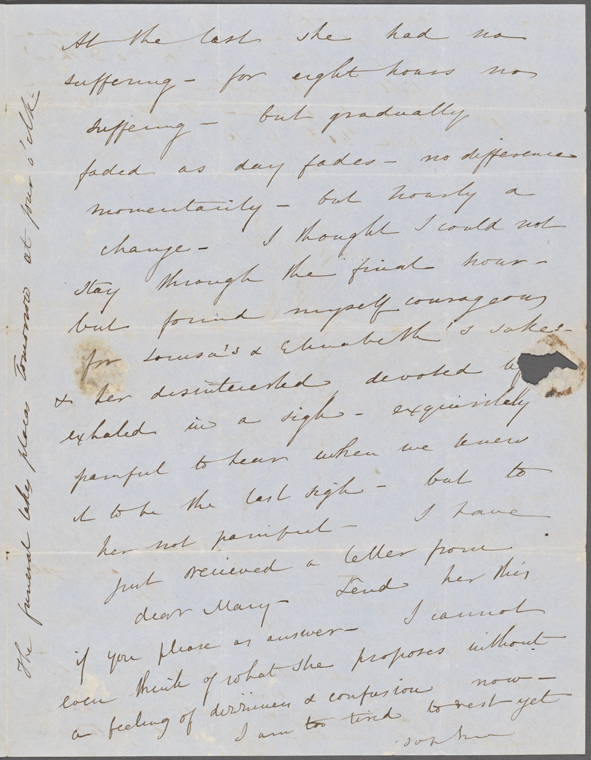 At the last she had no
suffering – for eight hours no
suffering – but gradually
faded as day fades – no difference
momentarily – but hourly a
change – I thought I could not
stay through the final hour –
but found myself courageous
for Louisa's & Elizabeth's sakes –
& her disinterested devoted
exhaled in a sigh – exquisitely
painful to hear when we knew
it to be the last sigh – but to
her not painful – I have
just recieved a letter from
dear Mary – Send her this
if you please as answer – I cannot
even think of what she proposes without
a feeling of dizziness & confusion now –
I am too tired to rest yet
Sophia
The funeral takes place tomorrow at four o'clk –